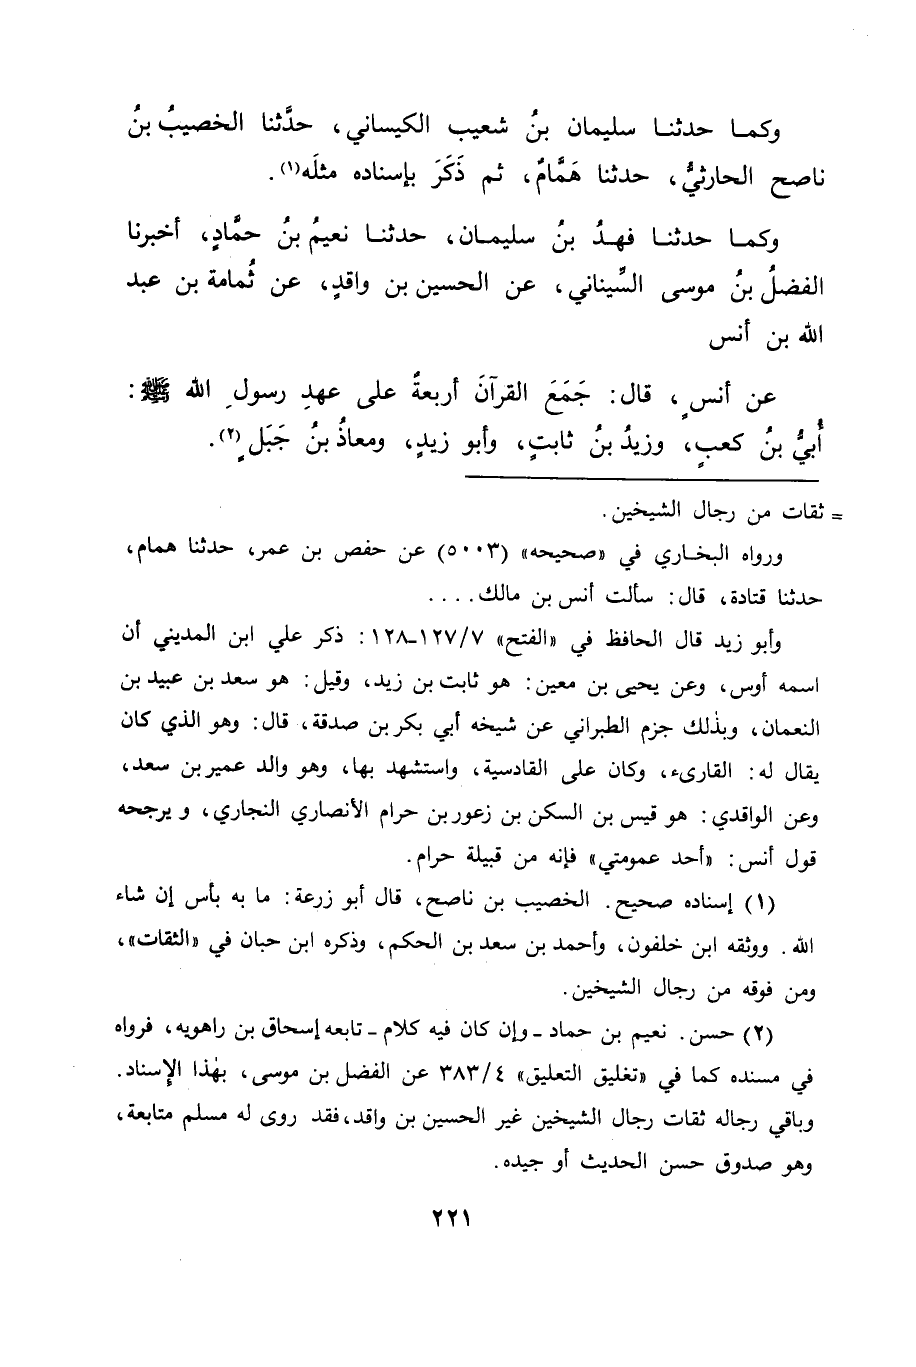 وكمـا حدثنـا سليمان بنُ شعيب الكيساني، حدَّثنا الخصيبُ بنُ
ناصح الحارثيُّ، حدثنا هَمَّامٌ، ثم ذَكَرَ بإسناده مثلَه(١).
وكمـا حدثنـا فهـدُ بنُ سليمـان، حدثنـا نعيمُ بنُ حمَّادٍ، أخبرنا
الفضلُ بنُ موسى السِّيناني، عن الحسين بن واقدٍ، عن ثُمامة بن عبد
الله بن أنس
عن أنسٍ، قال: جَمَعَ القرآنَ أربعةٌ على عهدِ رسولِ الله ﷺ:
أُبيُّ بنُ كعبٍ، وزيدُ بنُ ثابتٍ، وأبو زيدٍ، ومعاذُ بنُ جَبَلٍ(٢).
= ثقات من رجال الشيخين.
ورواه البخـاري في «صحيحه» (٥٠٠٣) عن حفص بن عمر، حدثنا همام،
حدثنا قتادة، قال: سألت أنس بن مالك....
وأبو زيد قال الحافظ في «الفتح» ١٢٧/٧-١٢٨: ذكر علي ابن المديني أن
اسمه أوس، وعن يحيى بن معين: هو ثابت بن زيد، وقيل: هو سعد بن عبيد بن
النعمان، وبذٰلك جزم الطبراني عن شيخه أبي بكر بن صدقة، قال: وهو الذي كان
يقال له: القارىء، وكان على القادسية، واستشهد بها، وهو والد عمير بن سعد،
وعن الواقدي: هو قيس بن السكن بن زعور بن حرام الأنصاري النجاري، ويرجحه
قول أنس: «أحد عمومتي» فإنه من قبيلة حرام.
(١) إسناده صحيح. الخصيب بن ناصح، قال أبو زرعة: ما به بأس إن شاء
الله. ووثقه ابن خلفون، وأحمد بن سعد بن الحكم، وذكره ابن حبان في «الثقات»،
ومن فوقه من رجال الشيخين.
(٢) حسن. نعيم بن حماد - وإن كان فيه كلام - تابعه إسحاق بن راهويه، فرواه
في مسنده كما في «تغليق التعليق» ٣٨٣/٤ عن الفضل بن موسى، بهٰذا الإسناد.
وباقي رجاله ثقات رجال الشيخين غير الحسين بن واقد، فقد روى له مسلم متابعة،
وهو صدوق حسن الحديث أو جيده.
٢٢١